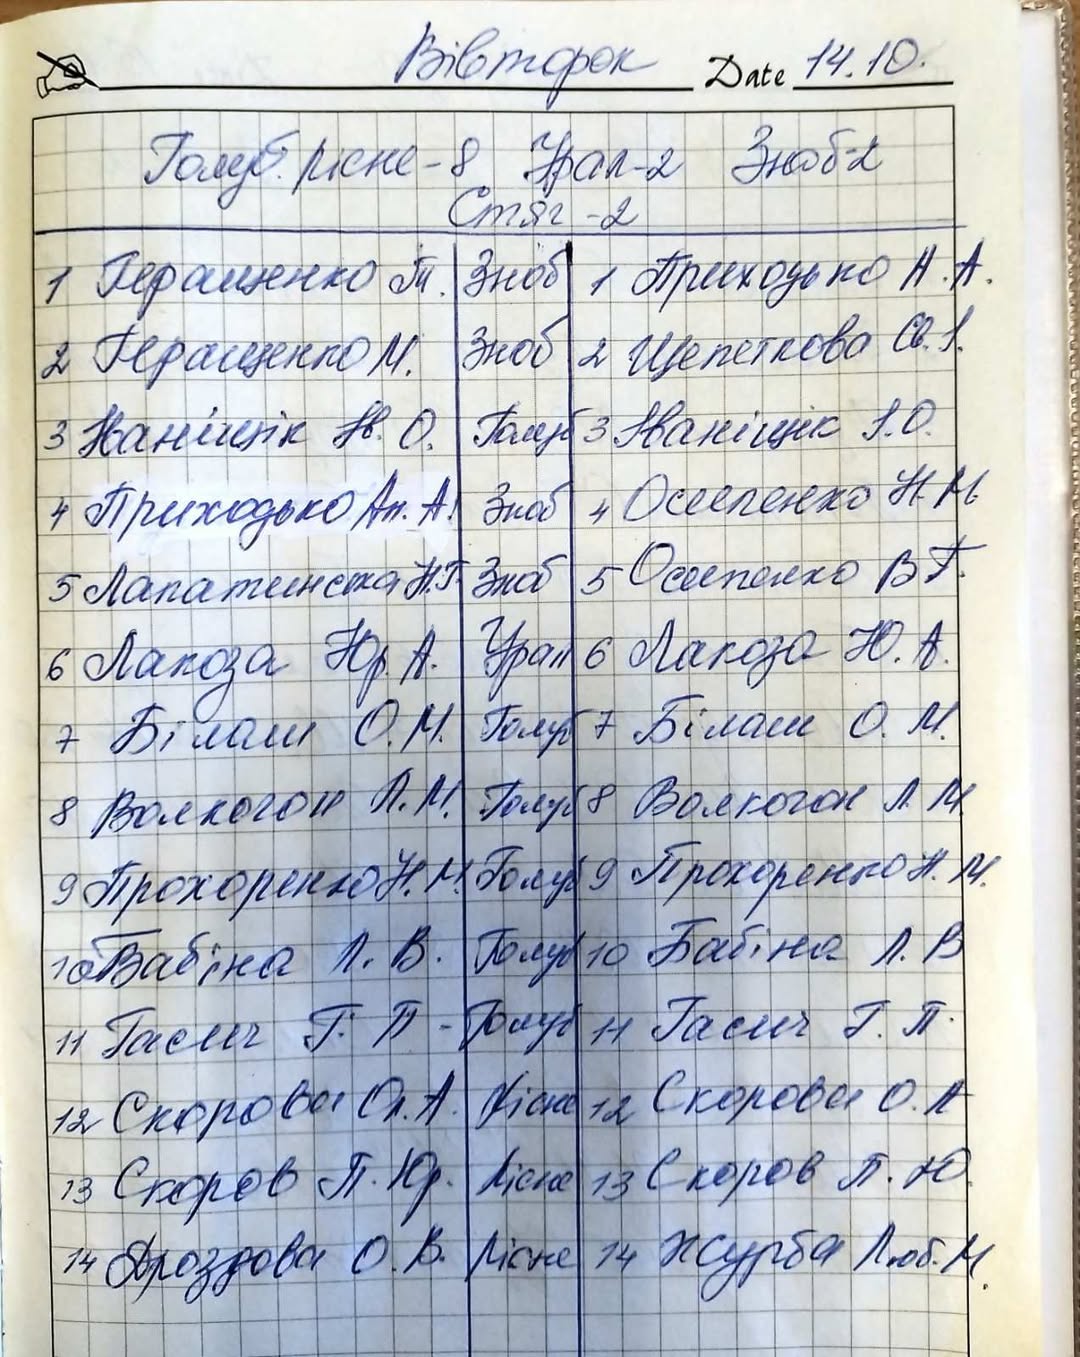 Вівторок Date 14.10.
Голуб. Лісне-8 Урал-2 Зноб-2
Стяг-2
1 Геращенко Т. Зноб 1 Приходько А. А.
2 Геращенко М. Зноб 2 Щепеткова Св. І.
3 Іваніщік Ів. О. Голуб 3 Іваніщік І. О.
4 Приходько Ан. А. Зноб 4 Осипенко Н. М
5 Лапатинська Н. Г. Зноб 5 Осипенко В Г.
6 Лакоза Юр А. Урал 6 Лакоза Ю. А.
7 Білаш О. М. Голуб 7 Білаш О. М.
8 Волкогон Л. М. Голуб 8 Волкогон Л. М.
9 Прохоренко Н. М. Голуб 9 Прохоренко Н. М.
10 Бабіна Л. В. Голуб 10 Бабіна Л. В
11 Гасич Г. П - Голуб 11 Гасич Г. П.
12 Скорова Ол. А. Лісне 12 Скорова О. А
13 Скоров П. Юр. Лісне 13 Скоров П. Ю.
14 Дроздова О. В. Лісне 14 Журба Люб. М.